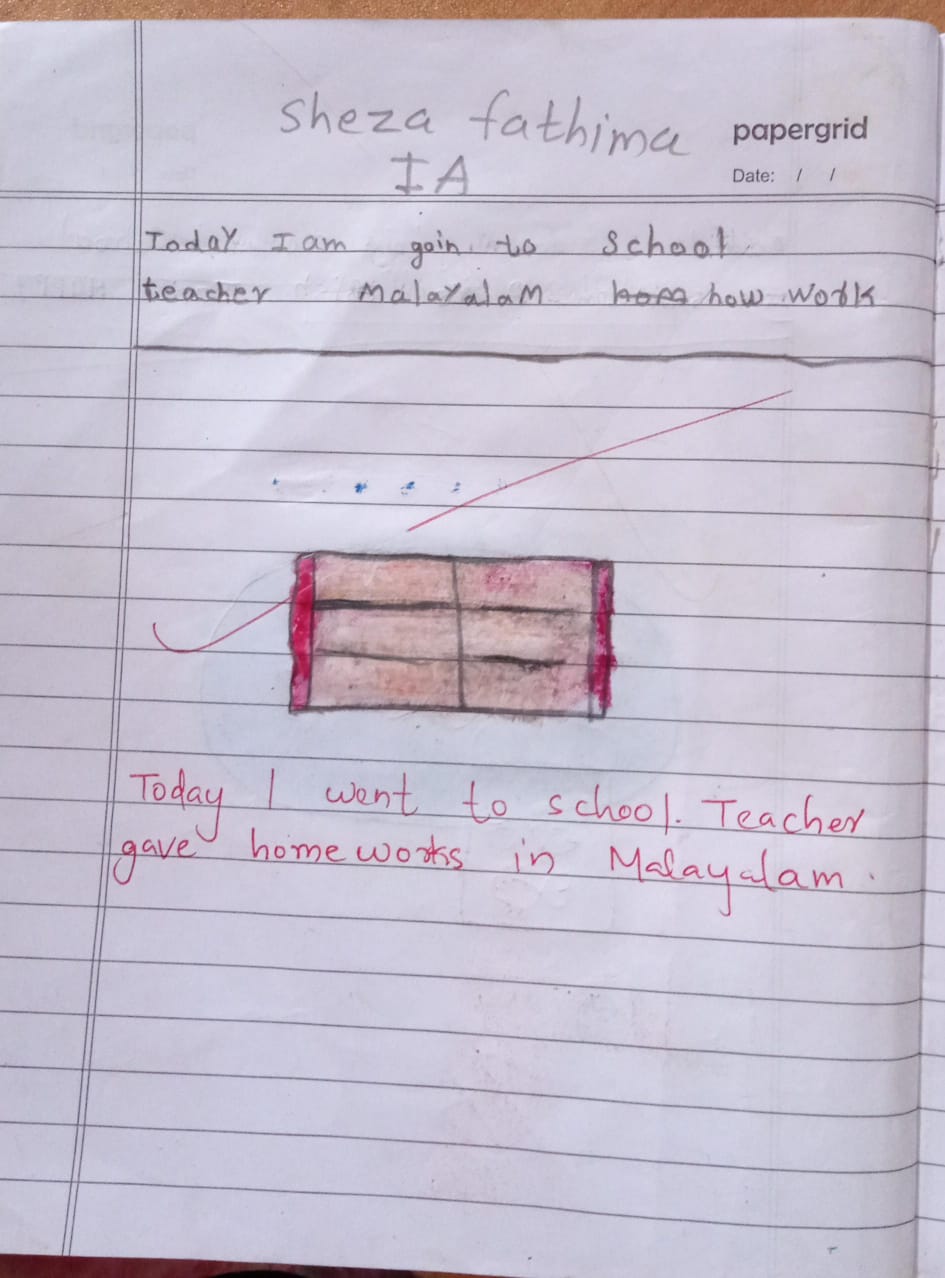 sheza fathima
papergrid
I A
Date: / /
Today I am goin to school
teacher Malayalam hom how work
Today I went to school. Teacher
gave homeworks in Malayalam.